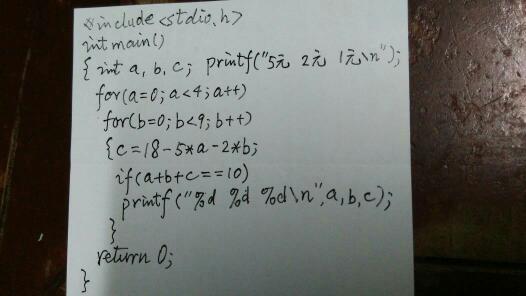 #include<stdio.h>
int main()
{ int a, b, c; printf("5元 2元 1元\n");
for(a=0; a<4; a++)
for(b=0; b<9; b++)
{c=18-5*a-2*b;
if(a+b+c==10)
printf("%d %d %d\n",a,b,c);
}
return 0;
}